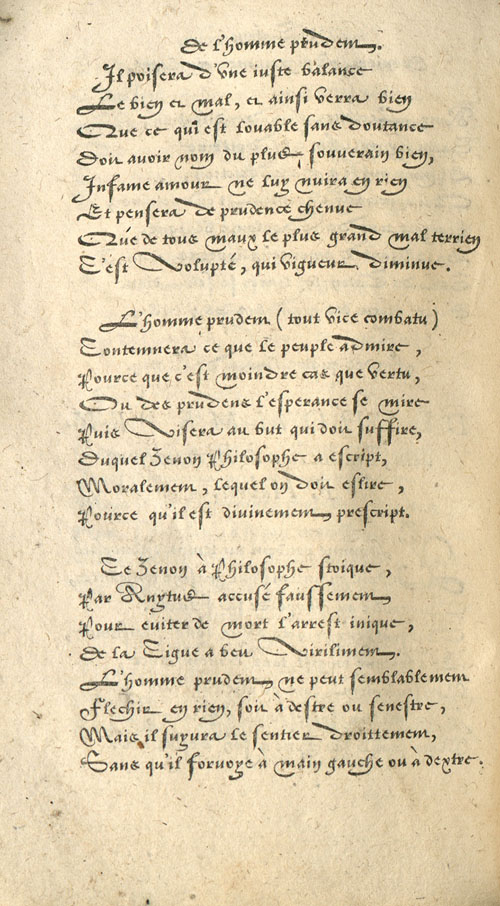 De l'homme prudent.
Il poisera d'vne iuste balance
Le bien et mal, et ainsi verra bien
Que ce qui est louable sans doutance
Doit avoir nom du plus souverain bien,
Infame amour ne luy nuira en rien
Et pensera de prudence chenue
Que de tous maux le plus grand mal terrien
C'est Volupté, qui vigueur diminue.
L'homme prudent (tout vice combatu)
Contemnera ce que le peuple admire,
Pource que c'est moindre cas que vertu,
Ou des prudens l'esperance se mire
Puis Visera au but qui doit suffire,
Duquel Zenon Philosophe a escript,
Moralement, lequel on doit eslire,
Pource qu'il est divinement prescript.
Ce Zenon à Philosophe stoique,
Par Anytus accusé faussement
Pour euiter de mort l'arrest inique,
De la Cigue a beu Virilment.
L'homme prudent, ne peut semblablement
Flechir en rien, soit à destre ou senestre,
Mais il suyura le sentier droittement,
Sans qu'il forvoye à main gauche ou à dextre.